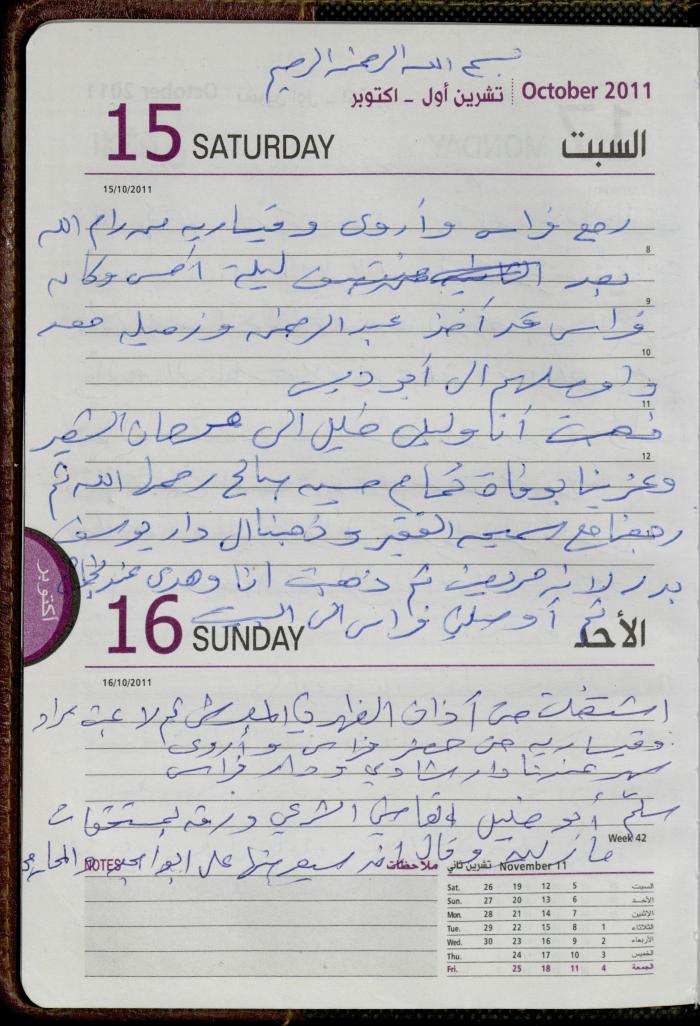 بسم الله الرحمن الرحيم
October 2011 تشرين أول - اكتوبر
15 SATURDAY السبت
15/10/2011
رجع فراس وأروى وقيساريه من رام الله
8
بعد منتصف ليلة أمس وكان
9
فراس قد أخذ عبد الرحمن وزميله معه
10
وأوصلهم الى أبو ديس
11
ذهبت أنا وليلى خليل الى
12
وعزينا بوفاة حسين صالح رحمه الله ثم
رجعنا مع سميح وذهبنا ال دار يوسف
بدر لانه مريض ثم ذهبت انا وهدى عند
ثم أوصلني فراس الى البيت
اكتوبر
16 SUNDAY الأحد
16/10/2011
اشتغلت من آذان الظهر في ثم لاعبت مراد
وقيساريه من فراس وأروى
سهر عندنا دار شاوي ودار فراس
سلّم أبو خليل القاضي الشرعي ورقة
وقال انه على
Week 42
NOTES ملاحظات
November 11 تشرين ثاني
Sat. 26 19 12 5 السبت
Sun. 27 20 13 6 الأحد
Mon. 28 21 14 7 الإثنين
Tue. 29 22 15 8 1 الثلاثاء
Wed. 30 23 16 9 2 الأربعاء
Thu. 24 17 10 3 الخميس
Fri. 25 18 11 4 الجمعة